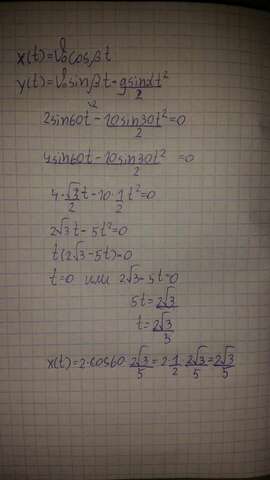 x(t)=v₀cosβt
y(t)=v₀sinβt-gsinαt²/2
2sin60t-10sin30t²/2=0
4sin60t-10sin30t²/2=0
4·√3/2t-10·1/2t²=0
2√3t-5t²=0
t(2√3-5t)=0
t=0 или 2√3-5t=0
5t=2√3
t=2√3/5
x(t)=2·cos60·2√3/5=2·1/2·2√3/5=2√3/5